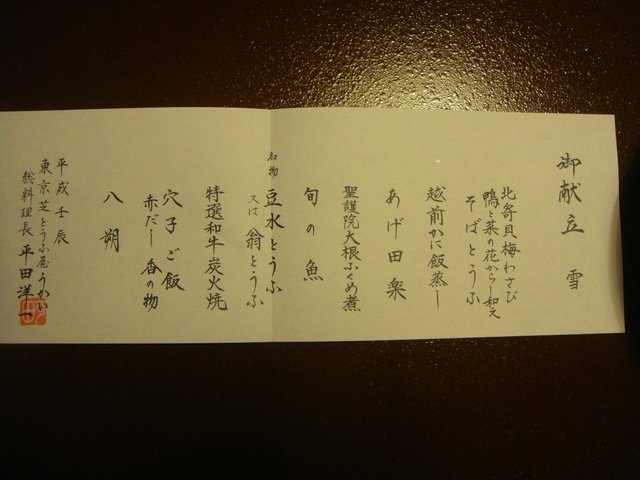 御献立 雪
北寄貝梅わさび
鴨と菜の花からし和え
そばとうふ
越前かに飯蒸し
あげ田楽
聖護院大根ふくめ煮
旬の魚
名物 豆水とうふ
又は 翁とうふ
特選和牛炭火焼
穴子ご飯
赤だし 香の物
八朔
平成壬辰
東京芝とうふ屋うかい
総料理長 平田洋一